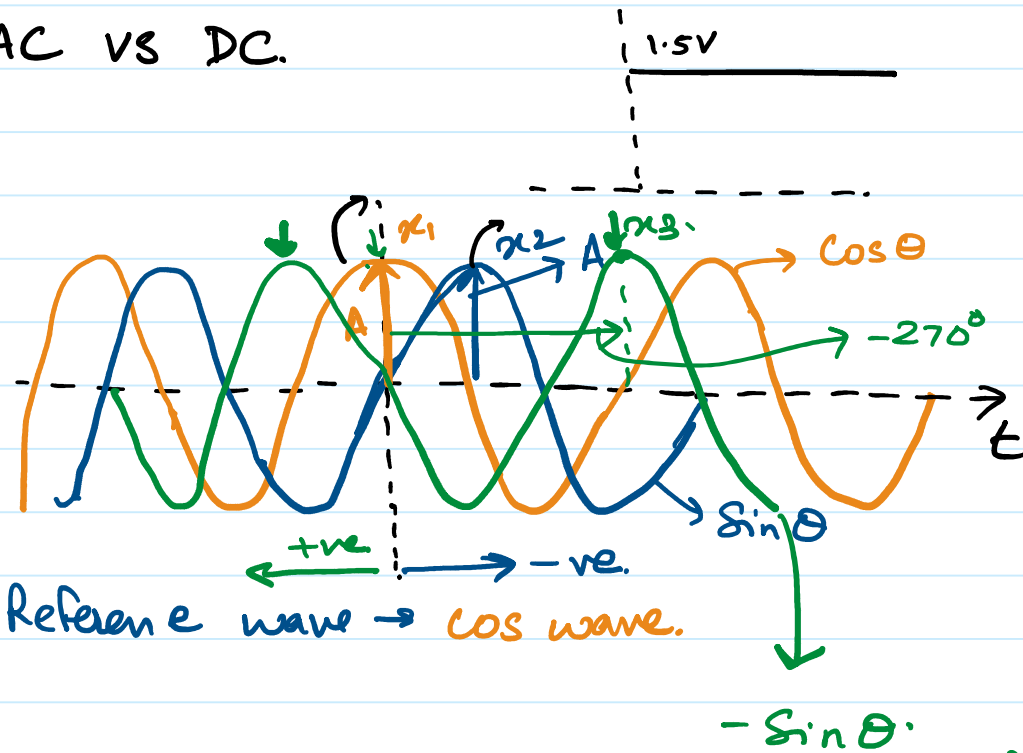 AC VS DC.
1.5V
x1
x2
A
x3.
cosθ
A
-270°
t
sinθ
+ve
-ve.
Reference wave → cos wave.
-sinθ.